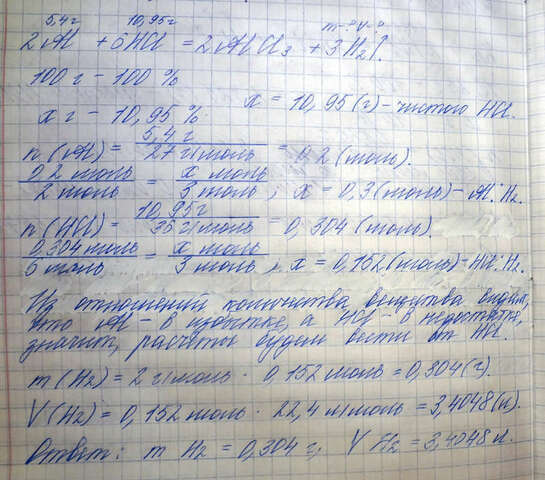 5,4 г 10,95 г m-? V-?
2Al + 6HCl = 2AlCl3 + 3H2↑.
100 г – 100 %
x г – 10,95 %. x = 10,95 (г) – чистого HCl.
n (Al) = 5,4 г / 27 г/моль = 0,2 (моль).
0,2 моль / 2 моль = x моль / 3 моль ; x = 0,3 (моль) – Al : H2.
n (HCl) = 10,95 г / 36 г/моль = 0,304 (моль).
0,304 моль / 6 моль = x моль / 3 моль ; x = 0,152 (моль) – HCl : H2.
Из отношений количества вещества видим,
что Al – в избытке, а HCl – в недостатке,
значит, расчёты будем вести от HCl.
m (H2) = 2 г/моль · 0,152 моль = 0,304 (г).
V (H2) = 0,152 моль · 22,4 л/моль = 3,4048 (л).
Ответ: m H2 = 0,304 г, V H2 = 3,4048 л.